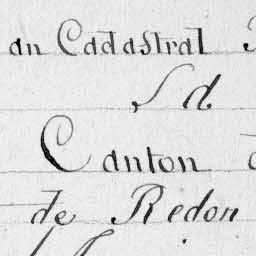 an Cadastral
Canton
de Redon